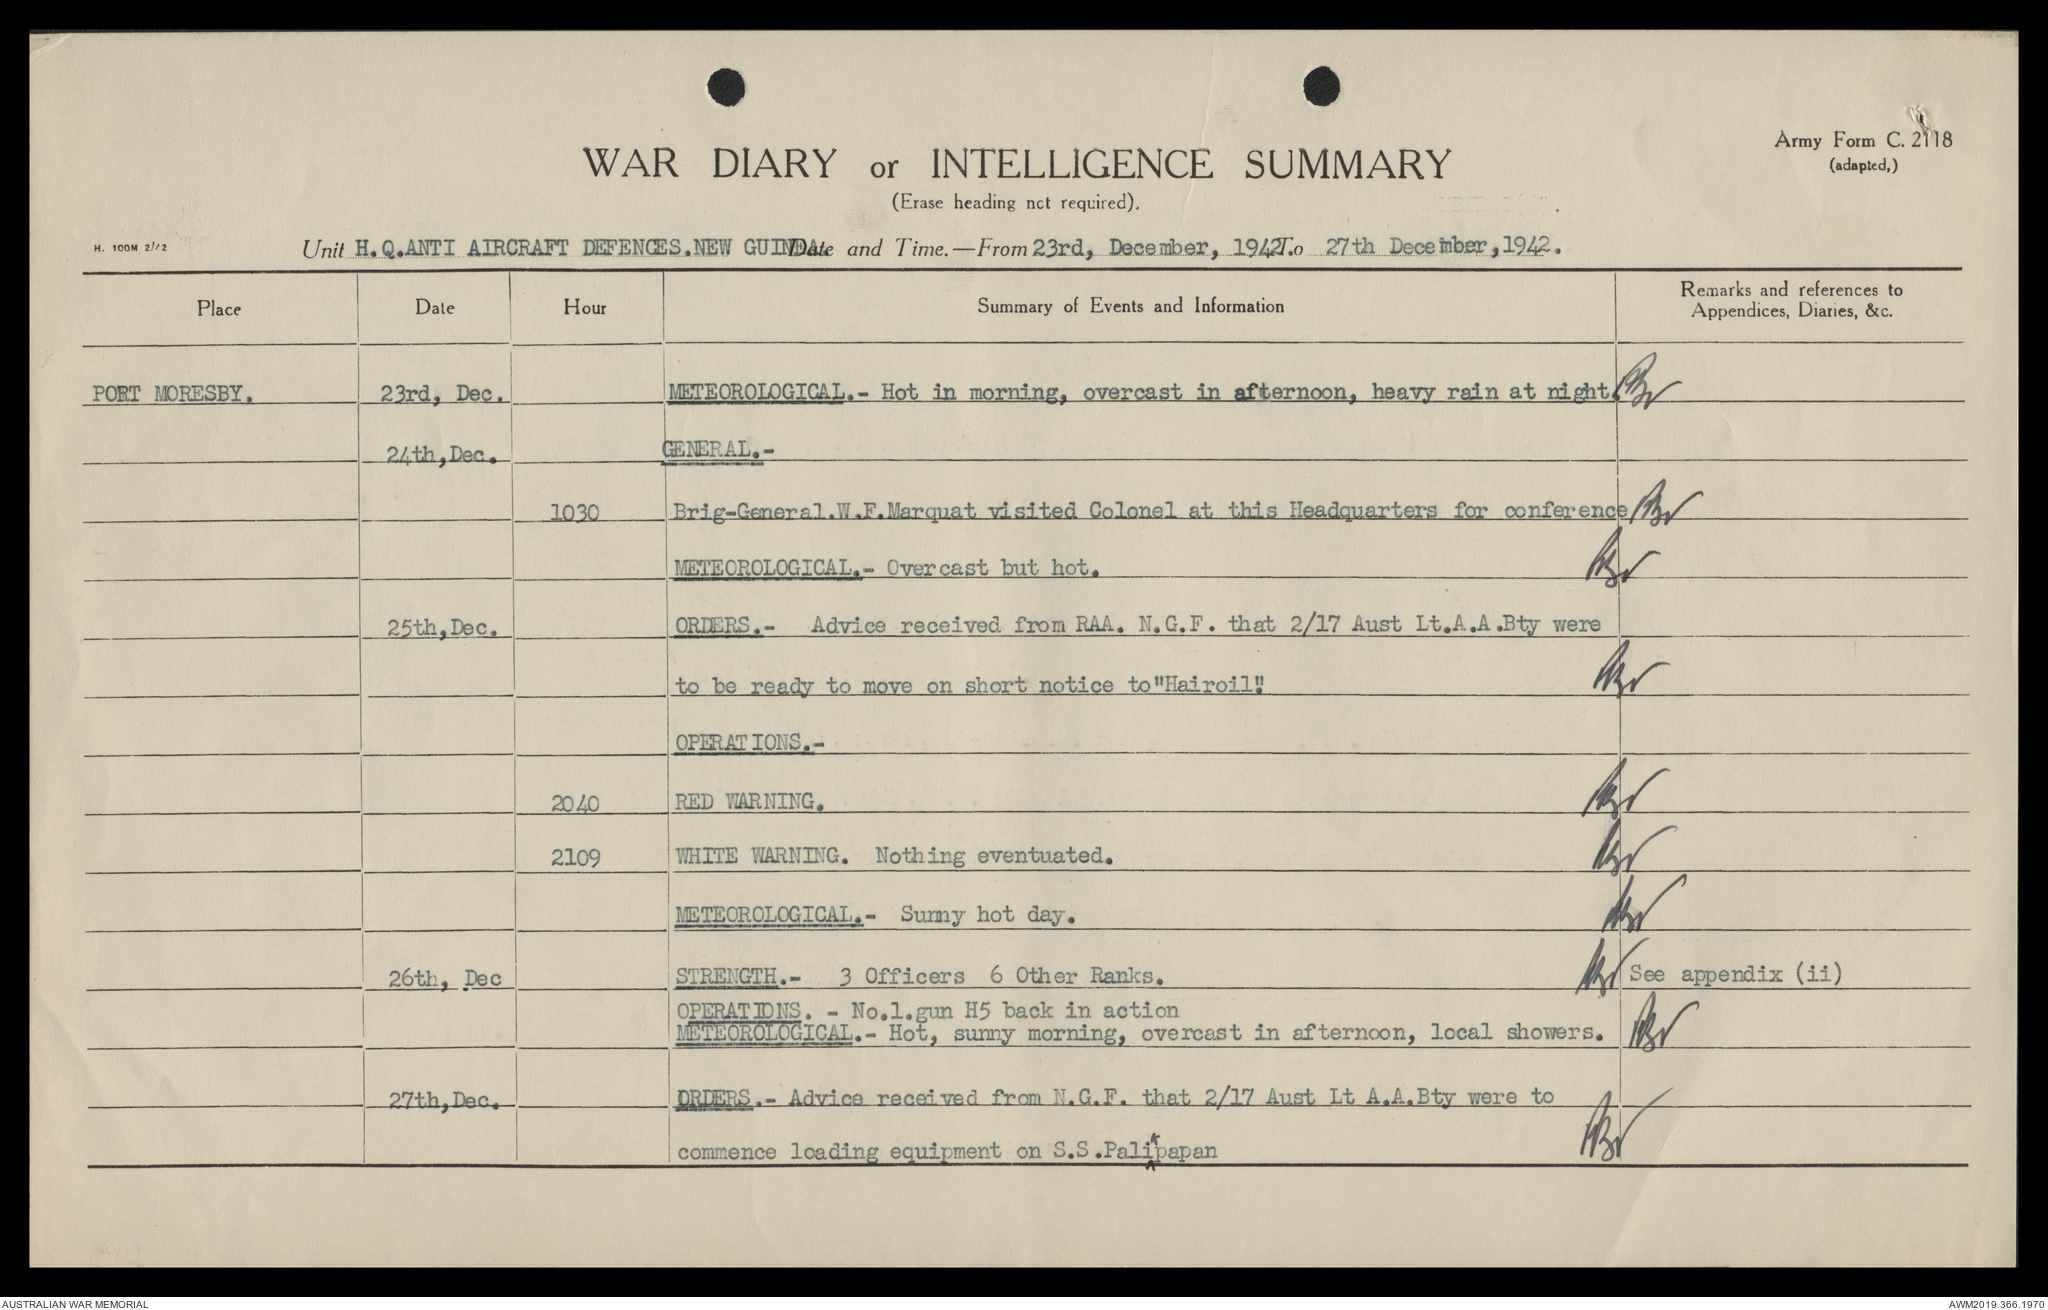 Army Form C. 2118
(adapted,)
WAR DIARY or INTELLIGENCE SUMMARY
(Erase heading not required).
H. 100M 2/42
Unit H.Q.ANTI AIRCRAFT DEFENCES.NEW GUINEA. Date and Time.—From 23rd, December, 1942. To 27th December,1942.
Place Date Hour Summary of Events and Information Remarks and references to
Appendices, Diaries, &c.
PORT MORESBY. 23rd, Dec. METEOROLOGICAL.- Hot in morning, overcast in afternoon, heavy rain at night.
24th,Dec. GENERAL.-
1030 Brig-General.W.F.Marquat visited Colonel at this Headquarters for conference
METEOROLOGICAL.- Overcast but hot.
25th,Dec. ORDERS.- Advice received from RAA. N.G.F. that 2/17 Aust Lt.A.A.Bty were
to be ready to move on short notice to"Hairoil".
OPERATIONS.-
2040 RED WARNING.
2109 WHITE WARNING. Nothing eventuated.
METEOROLOGICAL.- Sunny hot day.
26th, Dec STRENGTH.- 3 Officers 6 Other Ranks. See appendix (ii)
OPERATIONS. - No.1.gun H5 back in action
METEOROLOGICAL.- Hot, sunny morning, overcast in afternoon, local showers.
27th,Dec. ORDERS.- Advice received from N.G.F. that 2/17 Aust Lt A.A.Bty were to
commence loading equipment on S.S.Palikpapan
AUSTRALIAN WAR MEMORIAL AWM2019.366.1970